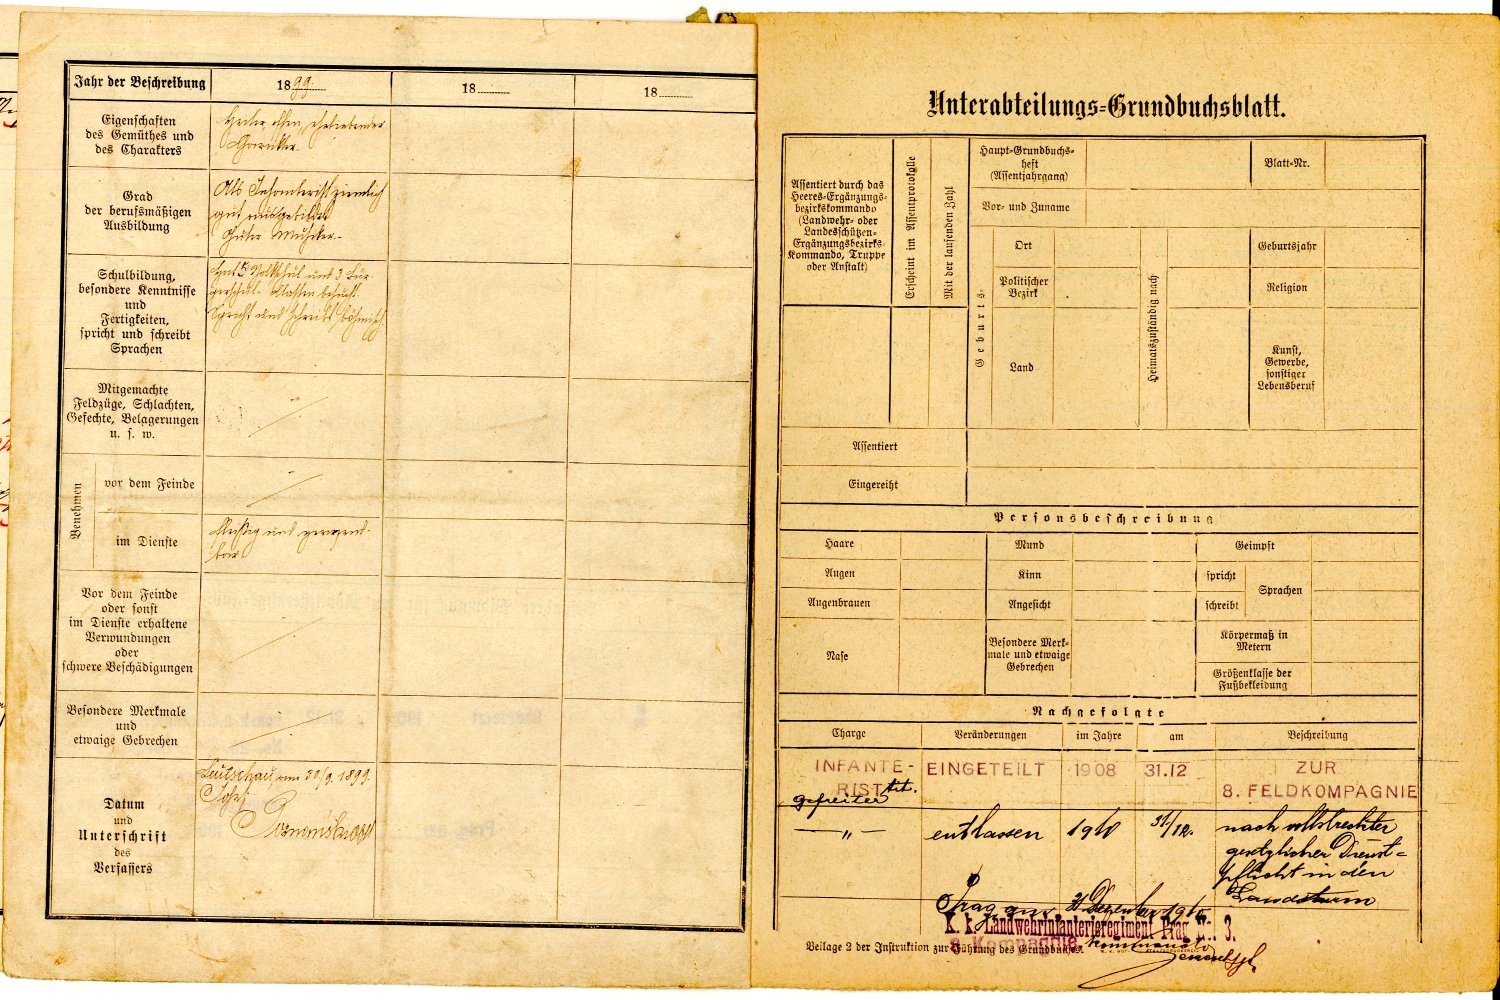 Jahr der Beschreibung
1899
18
18
Eigenschaften
des Gemüthes und
des Charakters
Heiter, offen, ehrliebender
Charakter
Grad
der berufsmäßigen
Ausbildung
Als Infanterist ziemlich
gut ausgebildet
Guter Musiker.
Schulbildung,
besondere Kenntnisse
und
Fertigkeiten,
spricht und schreibt
Sprachen
Hat 5 Volkschul und 3 Bür-
gerschul-Klassen besucht.
Spricht und schreibt böhmisch
Mitgemachte
Feldzüge, Schlachten,
Gefechte, Belagerungen
u. s. w.
Benehmen
vor dem Feinde
im Dienste
und
Vor dem Feinde
oder sonst
im Dienste erhaltene
Verwundungen
oder
schwere Beschädigungen
Besondere Merkmale
und
etwaige Gebrechen
Datum
und
Unterschrift
des
Verfassers
Leutschau, am 30/9. 1899.
Unterabteilungs-Grundbuchsblatt.
Assentiert durch das
Heeres-Ergänzungs-
bezirkskommando
(Landwehr- oder
Landesschützen-
Ergänzungsbezirks-
Kommando, Truppe
oder Anstalt)
Erscheint im Assentprotokolle
Mit der laufenden Zahl
Haupt-Grundbuchs-
heft
(Assentjahrgang)
Blatt-Nr.
Vor- und Zuname
Geburts-
Ort
Politischer
Bezirk
Land
Heimatszuständig nach
Geburtsjahr
Religion
Kunst,
Gewerbe,
sonstiger
Lebensberuf
Assentiert
Eingereiht
Personsbeschreibung
Haare
Mund
Geimpft
Augen
Kinn
spricht
Sprachen
Augenbrauen
Angesicht
schreibt
Nase
Besondere Merk-
male und etwaige
Gebrechen
Körpermaß in
Metern
Größenklasse der
Fußbekleidung
Nachgefolgte
Charge
Veränderungen
im Jahre
am
Beschreibung
INFANTE-
RIST
EINGETEILT
1908
31.12
ZUR
8. FELDKOMPAGNIE
tit.
gefreiter
— „ —
entlassen
1910
31/12.
nach vollstreckter
gesetzlicher Dienst-
pflicht in den
Landsturm
Prag am 31 Dezember 1910
K. k. Landwehrinfanterieregiment Prag No. 3.
8. Kompagnie.
Kommando
Beilage 2 der Instruktion zur Führung des Grundbuches.